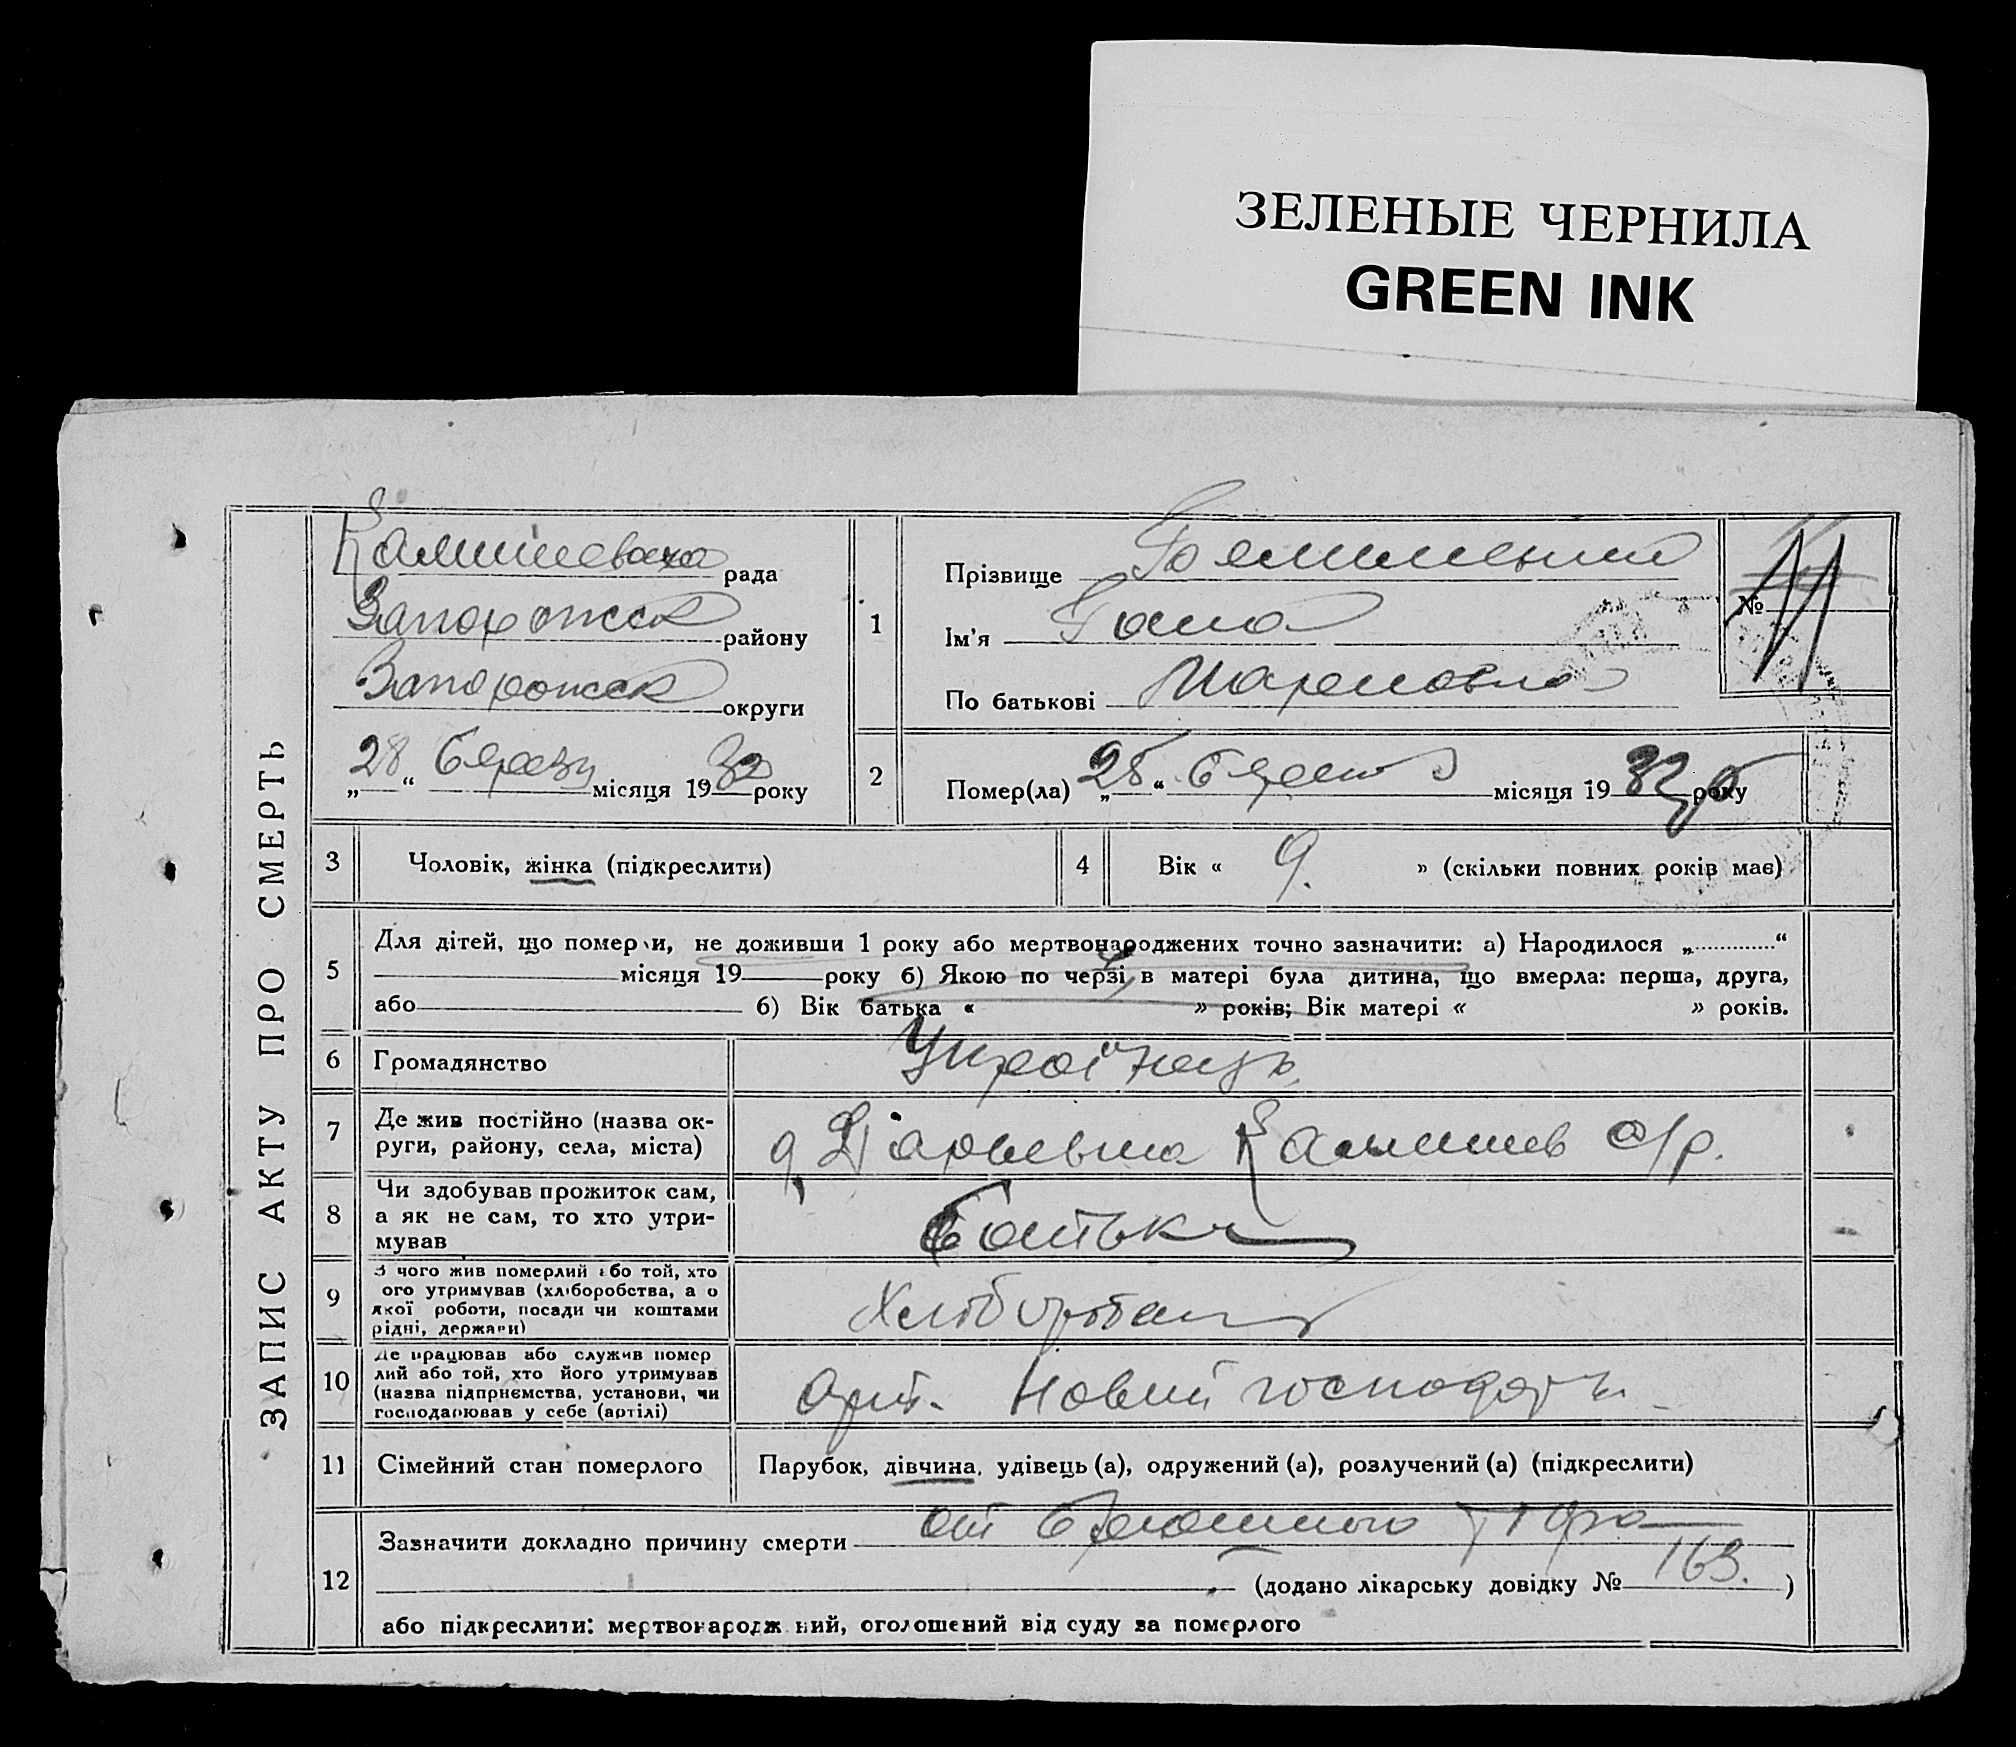 ЗЕЛЕНЫЕ ЧЕРНИЛА
GREEN INK
ЗАПИС АКТУ ПРО СМЕРТЬ
Камишеваха рада
Запорожск району
Запорожск округи
„28“ березня місяця 1932 року
1
Прізвище
Ім'я Гана
По батькові Марковна
№ 11
2
Помер(ла) „25“ березня місяця 1932 року
3 Чоловік, жінка (підкреслити)
4 Вік « 9. » (скільки повних років має)
5
Для дітей, що померли, не доживши 1 року або мертвонароджених точно зазначити: а) Народилося „ “
місяця 19 року б) Якою по черзі в матері була дитина, що вмерла: перша, друга,
або б) Вік батька « » років; Вік матері « » років.
6 Громадянство Україпець
7
Де жив постійно (назва ок-
руги, району, села, міста)
Дарьевка Камишев с/р.
8
Чи здобував прожиток сам,
а як не сам, то хто утри-
мував
батько
9
З чого жив померлий або той, хто
ого утримував (хліборобства, а о
якої роботи, посади чи коштами
рідні, держави)
Хлібороб
10
Де працював або служив помер
лий або той, хто його утримував
(назва підприємства, установи, чи
господарював у себе (артілі)
арт. Новий господарь.
11 Сімейний стан померлого Парубок, дівчина, удівець (а), одружений (а), розлучений (а) (підкреслити)
12
Зазначити докладно причину смерти от брюшного тифа
(додано лікарську довідку № 163. )
або підкреслити: мертвонародж ний, оголошений від суду за померлого